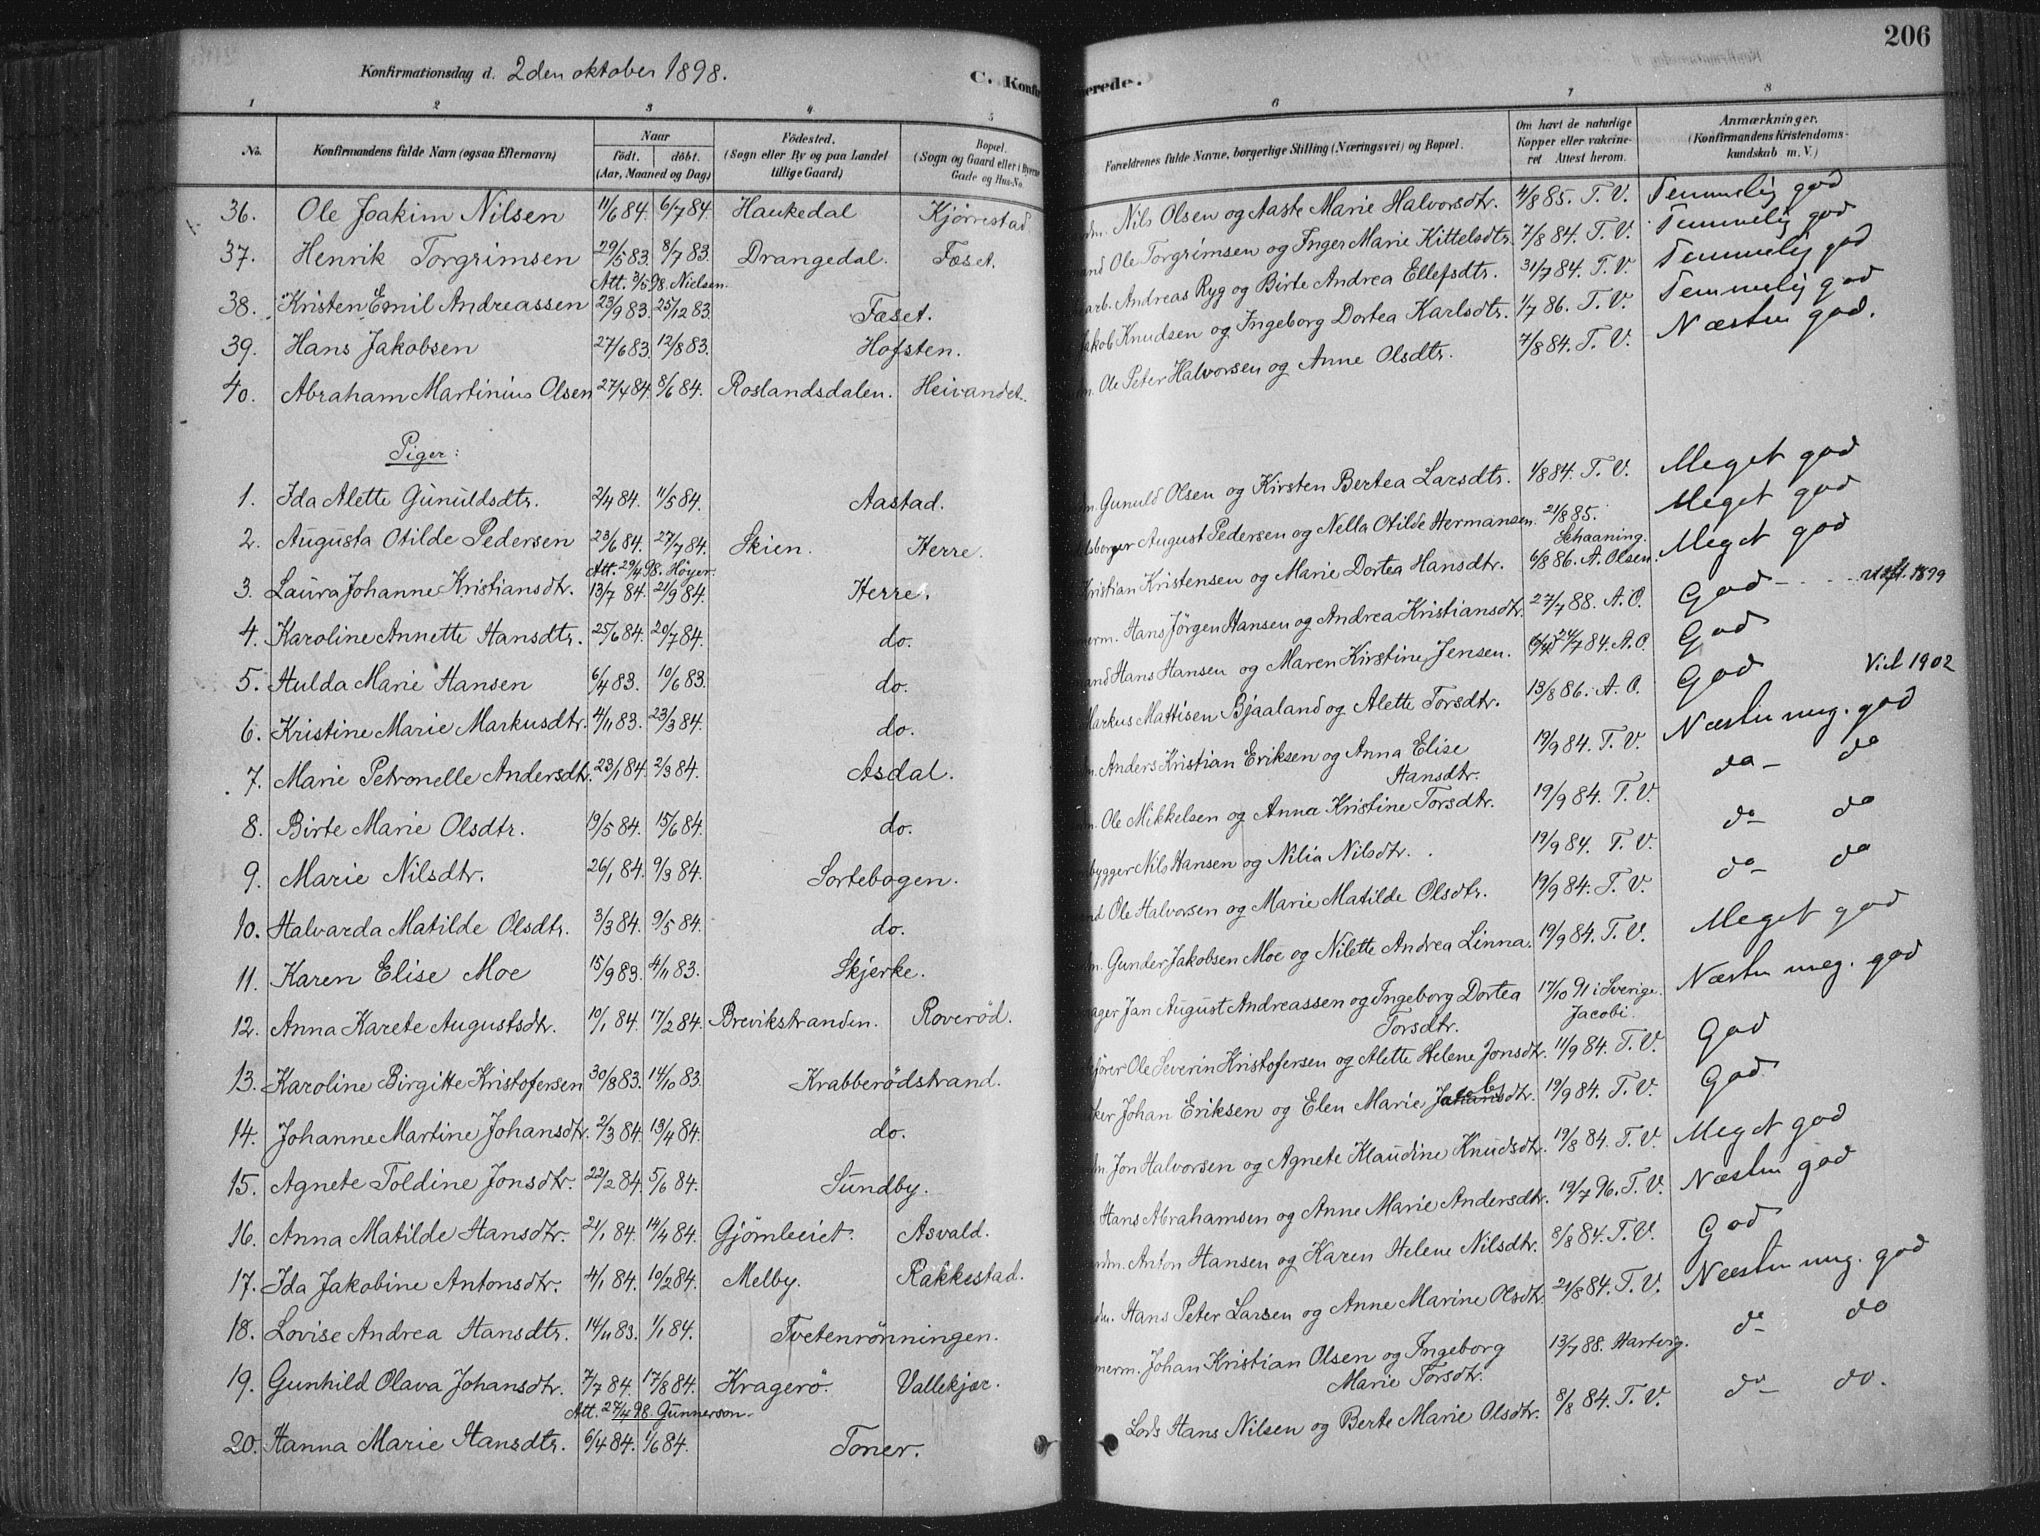 206
Konfirmationsdag d. 2den oktober 1898.
C. Konfir
erede.
1 2 3 4 5 6 7 8
No.
Konfirmandens fulde Navn (ogsaa Efternavn)
Naar
födt. döbt.
(Aar, Maaned og Dag)
Födested.
(Sogn eller By og paa Landet
tillige Gaard)
Bopæl.
(Sogn og Gaard eller i Byerne
Gade og Hus-No.
Forældrenes fulde Navne, borgerlige Stilling (Næringsvei) og Bopæl.
Om havt de naturlige
Kopper eller vakcine-
ret Attest herom.
Anmærkninger.
(Konfirmandens Kristendoms-
kundskab m. V.)
36. Ole Joakim Nilsen 11/6 84. 6/7 84. Haukedal Kjørrestad Nils Olsen og Aaste Marie Halvorsdtr. 4/8 85. T. V. Temmelig god
37. Henrik Torgrimsen 29/5 83. 8/7 83. Drangedal. Fæset. Ole Torgrimsen og Inger Marie Kittelsdtr. 7/8 84. T. V. Temmelig god
Att. 3/5 98. Nielsen.
38. Kristen Emil Andreassen 23/9 83. 25/12 83. Fæset. arb. Andreas Ryg og Birte Andrea Ellefsdtr. 31/7 84. T. V. Temmelig god
39. Hans Jakobsen 27/6 83. 12/8 83. Hofsten. Jakob Knudsen og Ingeborg Dortea Karlsdtr. 1/7 86. T. V. Temmelig god
40. Abraham Martinius Olsen 27/4 84. 8/6 84. Roslandsdalen. Heivandet. Ole Peter Halvorsen og Anne Olsdtr. 7/8 84. T. V. Næsten god.
Piger:
1. Ida Alette Gunuldsdtr. 2/4 84. 11/5 84. Aastad. Gunuld Olsen og Kirsten Bertea Larsdtr. 1/8 84. T. V. Meget god
2. Augusta Otilde Pedersen 23/6 84. 27/7 84. Skien. Herre. August Pedersen og Nella Otilde Hermansen. 21/8 85. Schaaning. Meget god
Att. 29/4 98. Höyer.
3. Laura Johanne Kristiansdtr. 13/7 84. 21/9 84. Herre. Kristian Kristensen og Marie Dortea Hansdtr. 6/8 86. A. Olsen. Meget god
4. Karoline Annette Hansdtr. 25/6 84. 20/7 84. do. Hans Jörgen Hansen og Andrea Kristiansdtr. 27/7 88. A. O. God 1899
5. Hulda Marie Hansen 6/4 83. 10/6 83. do. Hans Hansen og Maren Kirstine Jensen. 24/7 84. A. O. God
6. Kristine Marie Markusdtr. 4/11 83. 23/3 84. do. Markus Mattisen Bjaaland og Alette Torsdtr. 13/8 86. A. O. God Vid 1902
7. Marie Petronelle Andersdtr. 23/1 84. 2/3 84. Asdal. Anders Kristian Eriksen og Anna Elise
Hansdtr. 19/9 84. T. V. Næsten meg. god
8. Birte Marie Olsdtr. 19/5 84. 15/6 84. do. Ole Mikkelsen og Anna Kristine Torsdtr. 19/9 84. T. V. do do
9. Marie Nilsdtr. 26/1 84. 9/3 84. Sortebogen. bygger Nils Hansen og Nilia Nilsdtr. 19/9 84. T. V. do do
10. Halvarda Matilde Olsdtr. 3/3 84. 9/5 84. do. Ole Halvorsen og Marie Matilde Olsdtr. 19/9 84. T. V. do do
11. Karen Elise Moe 15/9 83. 4/11 83. Skjerke. Gunder Jakobsen Moe og Nilette Andrea Linna. 19/9 84. T. V. Meget god
12. Anna Karete Augustsdtr. 10/1 84. 17/2 84. Brevikstranden. Roveröd. Jan August Andreassen og Ingeborg Dortea
Torsdtr. 17/10 91 i Sverige. Jacobi. Næsten meg. god
13. Karoline Birgitte Kristofersen 30/8 83. 14/10 83. Krabberödstrand. Ole Severin Kristofersen og Alette Helene Jonsdtr. 11/9 84. T. V. God
14. Johanne Martine Johansdtr. 2/3 84. 13/4 84. do. Johan Eriksen og Elen Marie Jacobsdtr. 19/9 84. T. V. God
15. Agnete Toldine Jonsdtr. 22/2 84. 5/6 84. Sundby. Jon Halvorsen og Agnete Klaudine Knudsdtr. 19/8 84. T. V. Meget god
16. Anna Matilde Hansdtr. 21/1 84. 14/4 84. Gjömleiet. Asvald. Hans Abrahamsen og Anne Marie Andersdtr. 19/7 96. T. V. Næsten god
17. Ida Jakobine Antonsdtr. 4/1 84. 10/2 84. Melby. Rakkestad. Anton Hansen og Karen Helene Nilsdtr. 8/8 84. T. V. God
18. Lovise Andrea Hansdtr. 14/11 83. 1/1 84. Tvetenrönningen. Hans Peter Larsen og Anne Marine Olsdtr. 21/8 84. T. V. Næsten meg. god
19. Gunhild Olava Johansdtr. 7/7 84. 17/8 84. Kragerö. Vallekjær. Johan Kristian Olsen og Ingeborg
Marie Torsdtr. 13/7 88. Hartvig. do do
Att. 27/4 98. Gunnerson.
20. Hanna Marie Hansdtr. 6/4 84. 1/6 84. Toner. Lods Hans Nilsen og Berte Marie Olsdtr. 8/8 84. T. V. do do.